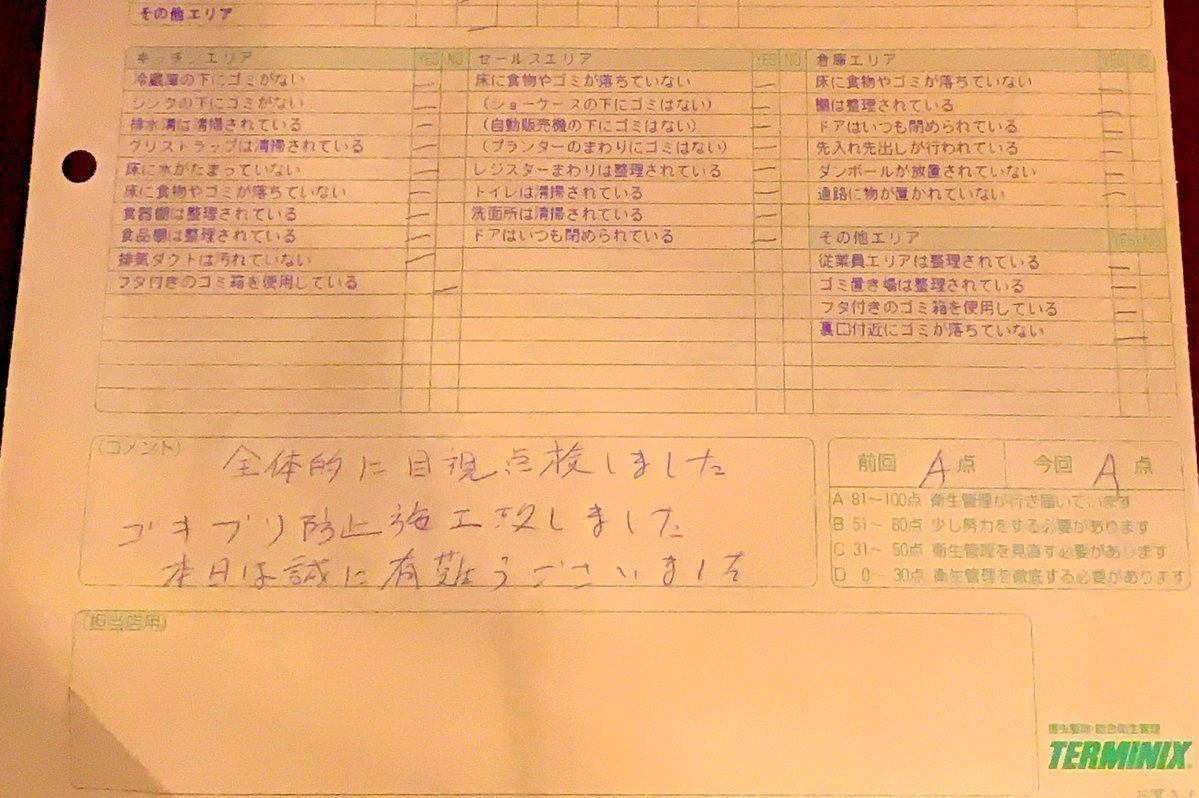 その他エリア
キッチンエリア YES NO
冷蔵庫の下にゴミがない
シンクの下にゴミがない
排水溝は清掃されている
グリストラップは清掃されている
床に水がたまっていない
床に食物やゴミが落ちていない
食器棚は整理されている
食品棚は整理されている
排気ダクトは汚れていない
フタ付きのゴミ箱を使用している
セールスエリア YES NO
床に食物やゴミが落ちていない
(ショーケースの下にゴミはない)
(自動販売機の下にゴミはない)
(プランターのまわりにゴミはない)
レジスターまわりは整理されている
トイレは清掃されている
洗面所は清掃されている
ドアはいつも閉められている
倉庫エリア YES NO
床に食物やゴミが落ちていない
棚は整理されている
ドアはいつも閉められている
先入れ先出しが行われている
ダンボールが放置されていない
通路に物が置かれていない
その他エリア YES NO
従業員エリアは整理されている
ゴミ置き場は整理されている
フタ付きのゴミ箱を使用している
裏口付近にゴミが落ちていない
(コメント)
全体的に目視点検しました
ゴキブリ防止施工致しました
本日は誠に有難うございました
前回 A 点 今回 A 点
A 81〜100点 衛生管理が行き届いています
B 51〜 80点 少し努力をする必要があります
C 31〜 50点 衛生管理を見直す必要があります
D 0〜 30点 衛生管理を徹底する必要があります
(担当店用)
害虫駆除・総合衛生管理
TERMINIX